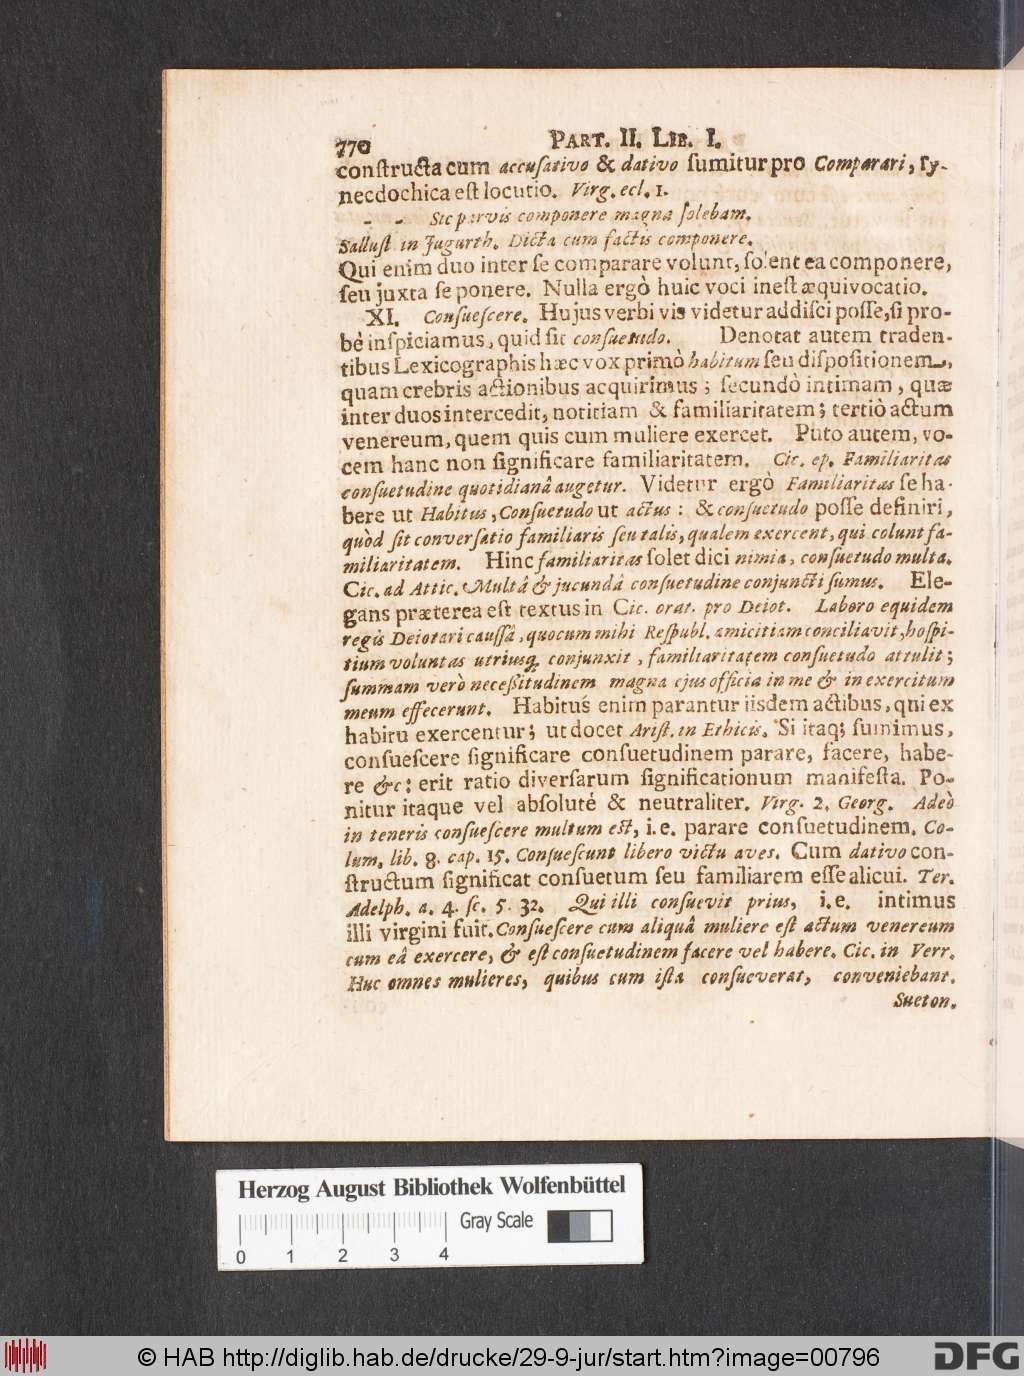 770 PART. II. LIB. I.
conſtructa cum accuſativo & dativo ſumitur pro Comparari, ſy-
necdochica eſt locutio. Virg. ecl. 1.
- - Sic parvis componere magna ſolebam.
Salluſt in Jugurth. Dicta cum factis componere.
Qui enim duo inter ſe comparare volunt, ſolent ea componere,
ſeu juxta ſe ponere. Nulla ergò huic voci ineſt æquivocatio.
XI. Conſueſcere. Hujus verbi vis videtur addiſci poſſe, ſi pro-
bè inſpiciamus, quid ſit conſuetudo. Denotat autem traden-
tibus Lexicographis hæc vox primò habitum ſeu diſpoſitionem,
quam crebris actionibus acquirimus; ſecundò intimam, quæ
inter duos intercedit, notitiam & familiaritatem; tertiò actum
venereum, quem quis cum muliere exercet. Puto autem, vo-
cem hanc non ſignificare familiaritatem. Cic. ep. Familiaritas
conſuetudine quotidianâ augetur. Videtur ergò Familiaritas ſe ha-
bere ut Habitus, Conſuetudo ut actus: & conſuetudo poſſe definiri,
quòd ſit converſatio familiaris ſeu talis, qualem exercent, qui colunt fa-
miliaritatem. Hinc familiaritas ſolet dici nimia, conſuetudo multa.
Cic. ad Attic. Multâ & jucundâ conſuetudine conjuncti ſumus. Ele-
gans præterea eſt textus in Cic. orat. pro Deiot. Laboro equidem
regis Deiotari cauſſâ, quocum mihi Reſpubl. amicitiam conciliavit, hoſpi-
tium voluntas utriusq; conjunxit, familiaritatem conſuetudo attulit;
ſummam verò neceſſitudinem magna ejus officia in me & in exercitum
meum effecerunt. Habitus enim parantur iisdem actibus, qui ex
habitu exercentur; ut docet Ariſt. in Ethicis. Si itaq; ſumimus,
conſueſcere ſignificare conſuetudinem parare, facere, habe-
re &c: erit ratio diverſarum ſignificationum manifeſta. Po-
nitur itaque vel abſolutè & neutraliter. Virg. 2. Georg. Adeò
in teneris conſueſcere multum eſt, i.e. parare conſuetudinem. Co-
lum. lib. 8. cap. 15. Conſueſcunt libero victu aves. Cum dativo con-
ſtructum ſignificat conſuetum ſeu familiarem eſſe alicui. Ter.
Adelph. a. 4. ſc. 5. 32. Qui illi conſuevit prius, i.e. intimus
illi virgini fuit. Conſueſcere cum aliquâ muliere eſt actum venereum
cum eâ exercere, & eſt conſuetudinem facere vel habere. Cic. in Verr.
Huc omnes mulieres, quibus cum iſta conſueverat, conveniebant.
Sueton.
Herzog August Bibliothek Wolfenbüttel
Gray Scale
0 1 2 3 4
© HAB http://diglib.hab.de/drucke/29-9-jur/start.htm?image=00796
DFG